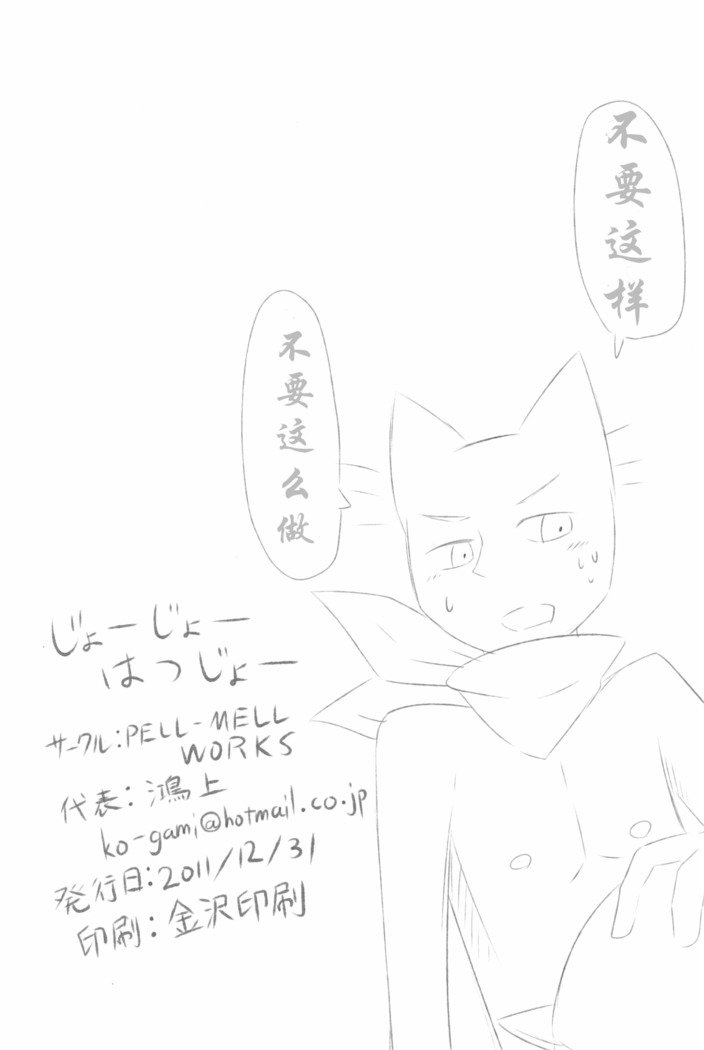 不要这样
不要这么做
じょーじょー
はつじょー
サークル：PELL-MELL
WORKS
代表：鴻上
ko-gami@hotmail.co.jp
発行日：2011/12/31
印刷：金沢印刷